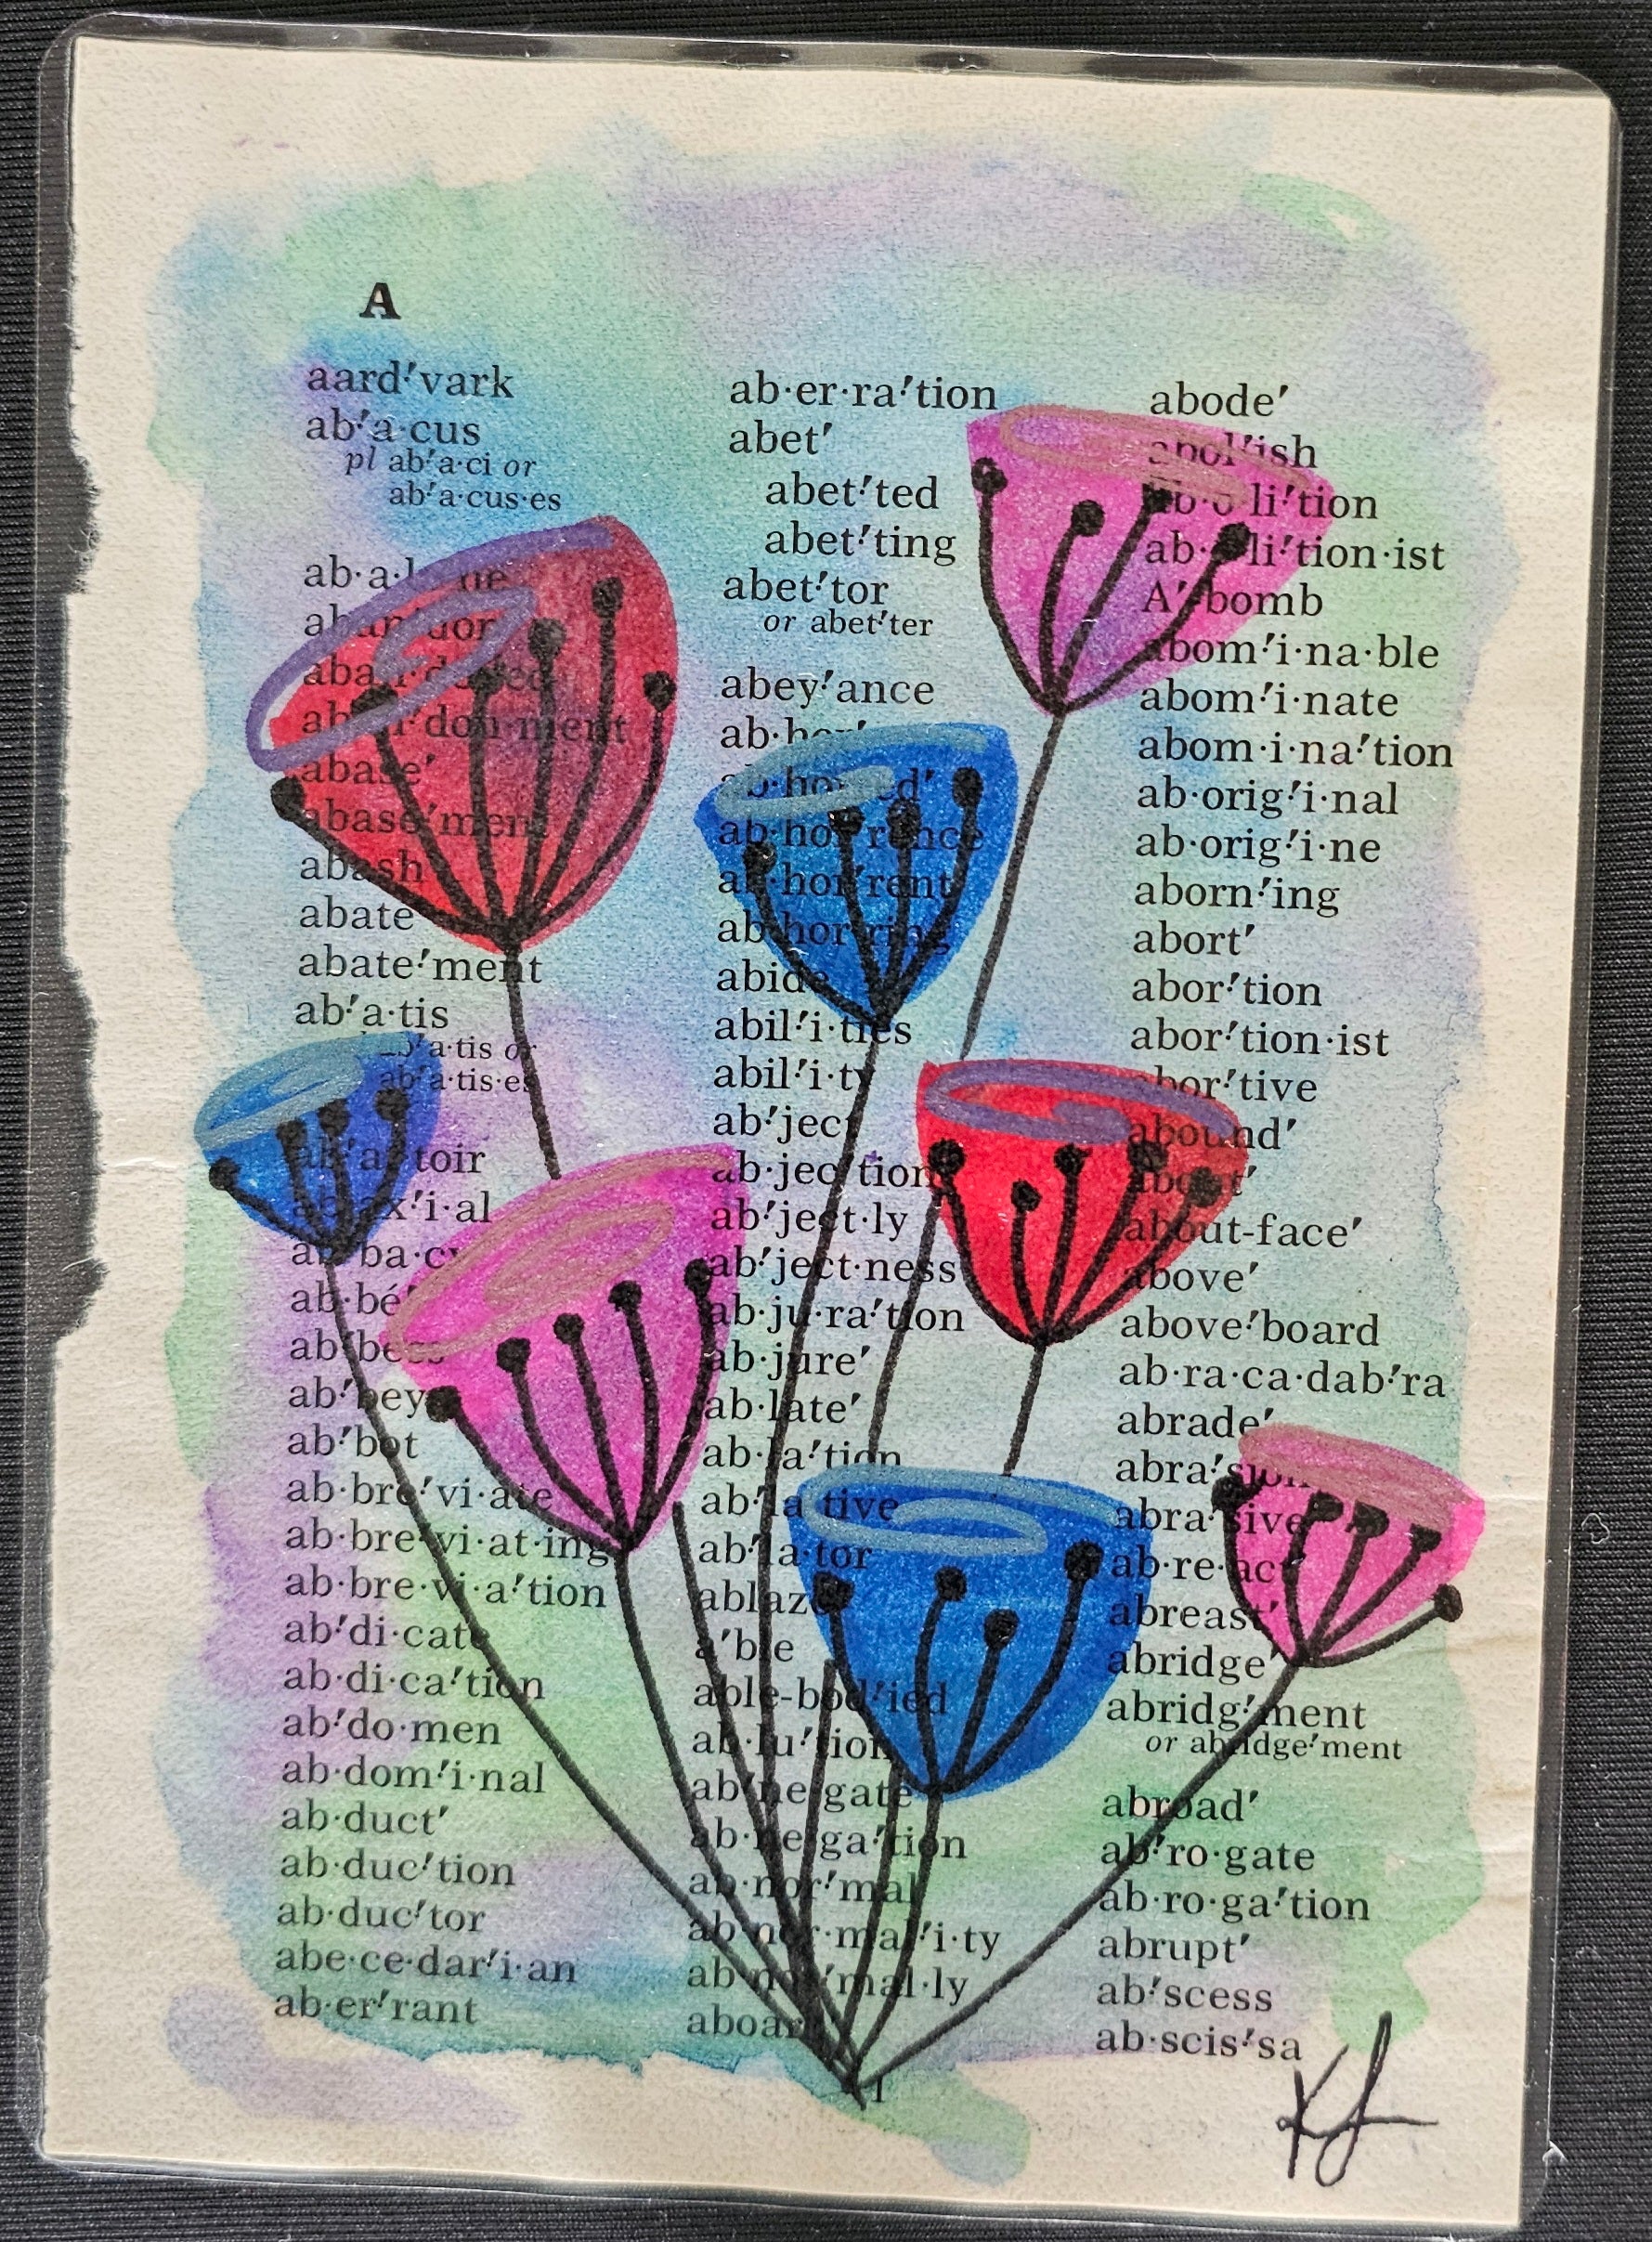 A
aard′vark
ab′a·cus
pl ab′a·ci or
ab′a·cus·es
aban′don·ment
abase′
abase′ment
abash
abate
abate′ment
ab′a·tis
ab′a·tis or
ab′a·tis·es
ab′at·toir
ab·ax′i·al
ab′ba·cy
ab·bé′
ab′bess
ab′bey
ab′bot
ab·bre′vi·ate
ab·bre·vi·at·ing
ab·bre·vi·a′tion
ab′di·cate
ab·di·ca′tion
ab′do·men
ab·dom′i·nal
ab·duct′
ab·duc′tion
ab·duc′tor
abe·ce·dar′i·an
ab·er′rant
ab·er·ra′tion
abet′
abet′ted
abet′ting
abet′tor
or abet′ter
abey′ance
ab·hor′
ab·horred′
ab·hor′rence
ab·hor′rent
ab·hor′ring
abide
abil′i·ties
abil′i·ty
ab′ject
ab·jec′tion
ab′ject·ly
ab′ject·ness
ab·ju·ra′tion
ab·jure′
ab·late′
ab·la′tion
ab′la·tive
ab′la·tor
ablaze
a′ble
able-bod′ied
ab·lu′tion
ab′ne·gate
ab·ne·ga′tion
ab·nor′mal
ab·nor·mal′i·ty
ab·nor′mal·ly
aboard
abode′
abol′ish
ab·o·li′tion
ab·o·li′tion·ist
A′-bomb
abom′i·na·ble
abom′i·nate
abom·i·na′tion
ab·orig′i·nal
ab·orig′i·ne
aborn′ing
abort′
abor′tion
abor′tion·ist
abor′tive
abound′
about′
about-face′
above′
above′board
ab·ra·ca·dab′ra
abrade′
abra′sion
abra′sive
ab·re·act
abreast′
abridge′
abridg′ment
or abridge′ment
abroad′
ab′ro·gate
ab·ro·ga′tion
abrupt′
ab′scess
ab·scis′sa
1